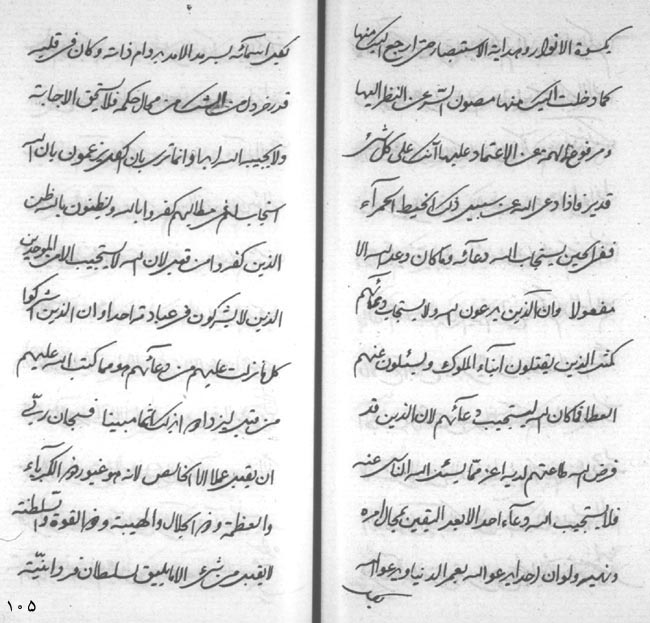 بكسوة الانوار وهداية الاستبصار حتى ارجع اليك منها
كما دخلت اليك منها مصون السر عن النظر اليها
ومرفوع الهمة عن الاعتماد عليها انك على كل شئ
قدير فاذا دعى الله عن سبيل ذلك الخيط الحمرآء
ففى الحين يستجاب الله دعائه وما كان وعد الله الا
مفعولا وان الذين يدعون الله ولا يستجاب دعائهم
كمثل الذين يقتلون أبناء الملوك ويسئلون عنهم
العطا فما كان الله ليستجيب دعآئهم لان الذين قد
فرض الله طاعتهم لديه اعز مما يسئل الله الناس عنه
فلا يستجيب الله دعآء احد الا بعد اليقين بمحال امره
ونهيه ولو ان احدا يدعو الله بعمر الدنيا ويدعو الله
بكل
بكل اسمآئه بسرمد الامد بدوام ذاته وكان فى قلبه
قدر خردل من الشك من محال حكمه فلا يحق الاجابة
ولا يجيب الله ابدا وانما ترى بان الكفار يزعمون بان الله
استجاب لهم مطالبهم كفروا بالله ولظنون بالله ظن
الذين كفروا من قبل لان الله لا يستجيب الا من الموحدين
الذين لا يشركون فى عبادته احدا وان الذين اشركوا
كل ما نزلت عليهم من دعآئهم هو مما كتب الله عليهم
من قبل ليزدادوا بذلك اثما مبينا فسبحان ربى
ان يقبل عملا الا الخالص لانه هو غيور ذو الكبرياء
والعظمة وذو الجلال والهيبة وذو القوة والسلطنة
لا يقبل من شئ الا ما يليق لسلطان فردانيته
١٠٥